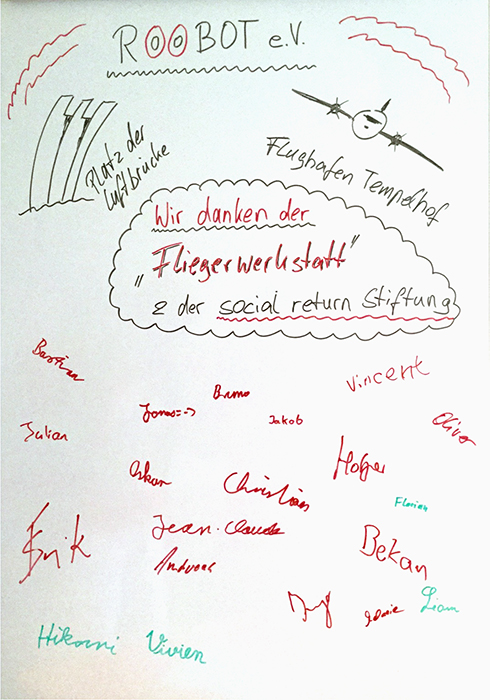 ROOBOT e.V.
Platz der
Luftbrücke
Flughafen Tempelhof
Wir danken der
„Fliegerwerkstatt"
& der social return Stiftung
Bastian
Vincent
Bruno
Jonas
Jakob
Oliver
Julian
Holger
Oskar
Christian
Florian
Erik
Jean-Claude
Bekan
Andreas
Liam
Hikari
Vivien